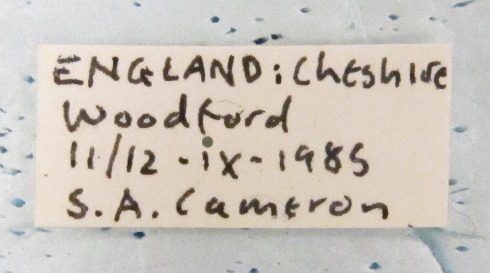 ENGLAND: Cheshire
Woodford
11/12-ix-1985
S.A. Cameron